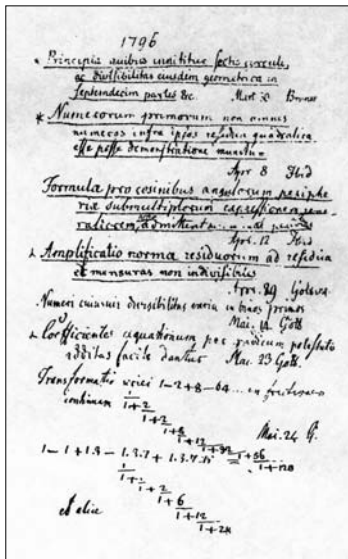 1796
* Principia quibus innititur sectio circuli,
ac divisibilitas eiusdem geometrica in
septemdecim partes &c. Mart. 30 Brunsv.
* Numerorum primorum non omnes
numeros infra ipsos residua quadratica
esse posse demonstratione munitum.
Apr. 8 Ibid
Formulae pro cosinibus angulorum periphe
riae submultiplorum expressionem gene
raliorem non admittent
Apr. 12 Ibid
Amplificatio normae residuorum ad residua
et mensuras non indivisibiles
Apr. 29 Gotting.
Numeri cuiusvis divisibilitas varia in binos primos
Mai. 14 Gott.
Coefficientes aequationum per radicum potestates
additas facile dantur Mai. 23 Gott.
Transformatio seriei 1-2+8-64... in fractionem
continuam 1
1+2
1+2
1+8
1+12
1+32
Mai. 24 G.
1+56
1+128
1-1+1.3-1.3.7+1.3.7.15
1
1+1
1+2
1+6
1+12
1+28
et aliae